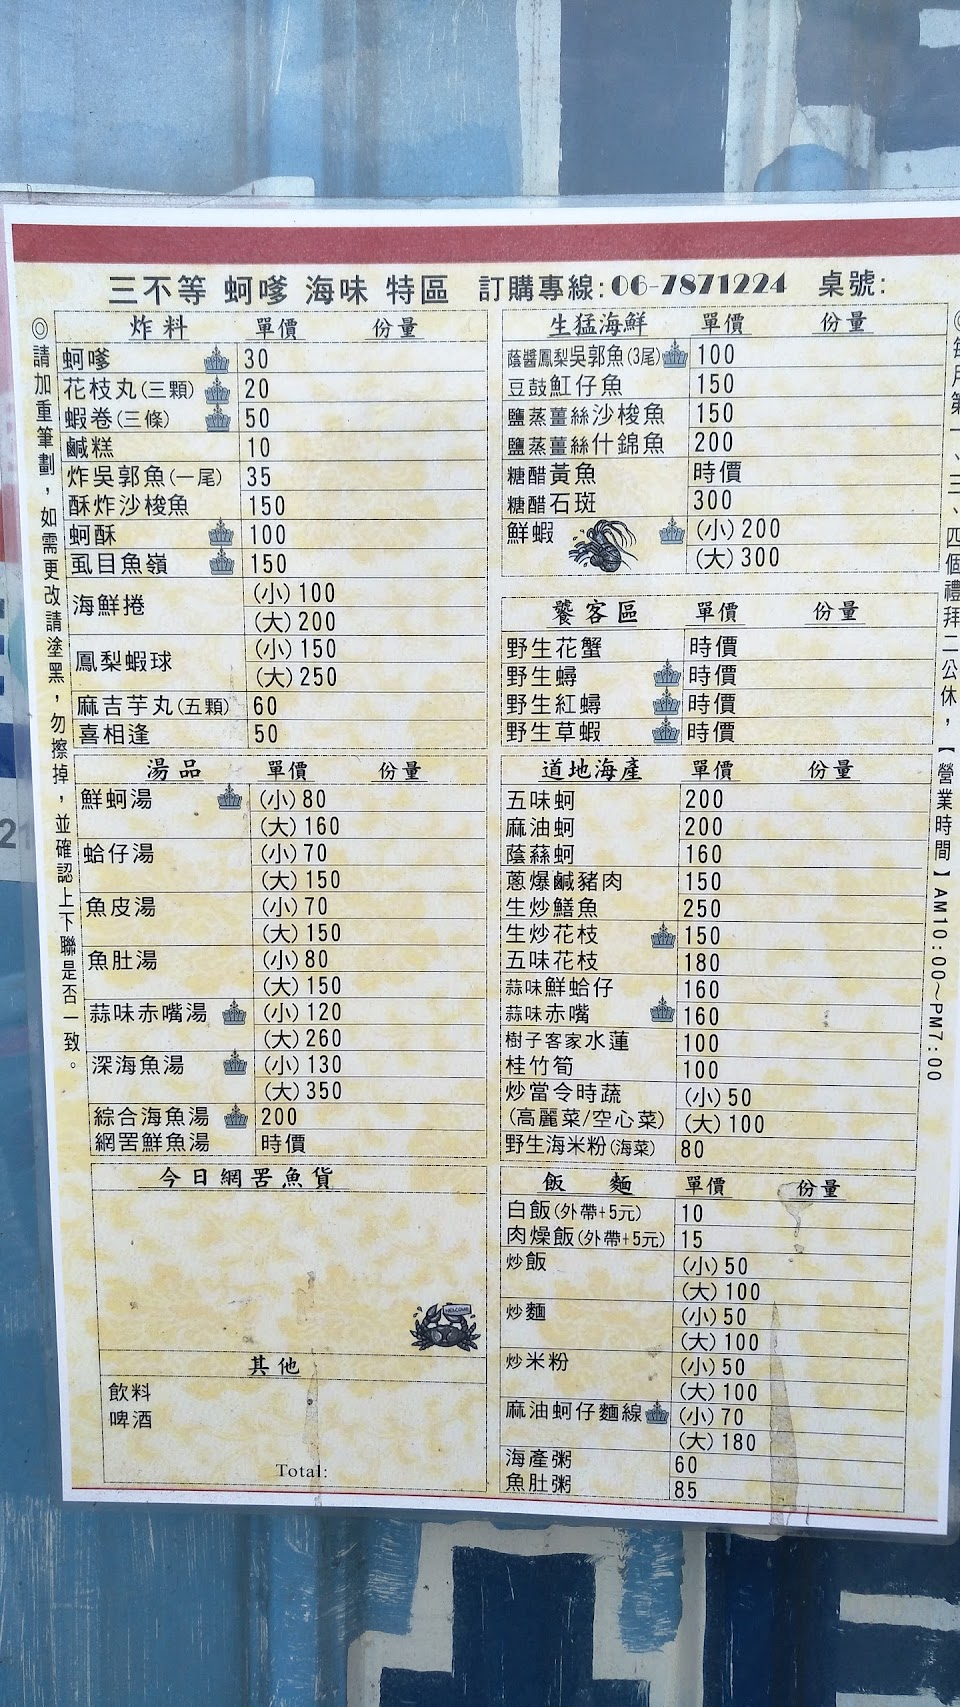 三不等 蚵嗲 海味 特區 訂購專線:06-7871224 桌號:
◎請加重筆劃，如需更改請塗黑，勿擦掉，並確認上下聯是否一致。
炸料 單價 份量
蚵嗲 30
花枝丸(三顆) 20
蝦卷(三條) 50
鹹糕 10
炸吳郭魚(一尾) 35
酥炸沙梭魚 150
蚵酥 100
虱目魚嶺 150
海鮮捲 (小)100
(大)200
鳳梨蝦球 (小)150
(大)250
麻吉芋丸(五顆) 60
喜相逢 50
湯品 單價 份量
鮮蚵湯 (小)80
(大)160
蛤仔湯 (小)70
(大)150
魚皮湯 (小)70
(大)150
魚肚湯 (小)80
(大)150
蒜味赤嘴湯 (小)120
(大)260
深海魚湯 (小)130
(大)350
綜合海魚湯 200
網罟鮮魚湯 時價
今日網罟魚貨
WELCOME
其他
飲料
啤酒
Total:
生猛海鮮 單價 份量
蔭醬鳳梨吳郭魚(3尾) 100
豆鼓魟仔魚 150
鹽蒸薑絲沙梭魚 150
鹽蒸薑絲什錦魚 200
糖醋黃魚 時價
糖醋石斑 300
鮮蝦 (小)200
(大)300
饕客區 單價 份量
野生花蟹 時價
野生蟳 時價
野生紅蟳 時價
野生草蝦 時價
道地海產 單價 份量
五味蚵 200
麻油蚵 200
蔭蕬蚵 160
蔥爆鹹豬肉 150
生炒鱔魚 250
生炒花枝 150
五味花枝 180
蒜味鮮蛤仔 160
蒜味赤嘴 160
樹子客家水蓮 100
桂竹筍 100
炒當令時蔬 (小)50
(高麗菜/空心菜) (大)100
野生海米粉(海菜) 80
飯 麵 單價 份量
白飯(外帶+5元) 10
肉燥飯(外帶+5元) 15
炒飯 (小)50
(大)100
炒麵 (小)50
(大)100
炒米粉 (小)50
(大)100
麻油蚵仔麵線 (小)70
(大)180
海產粥 60
魚肚粥 85
◎每月第一、三、四個禮拜二公休，【營業時間】AM10:00~PM7:00